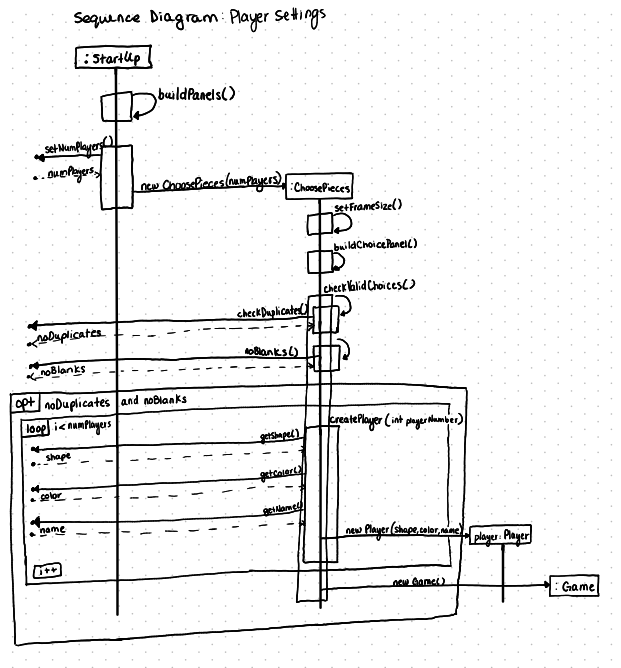 Sequence Diagram: Player Settings
: StartUp
buildPanels()
setNumPlayers()
numPlayers
new ChoosePieces(numPlayers)
:ChoosePieces
setFrameSize()
buildChoicePanel()
checkValidChoices()
checkDuplicates()
noDuplicates
noBlanks()
noBlanks
opt noDuplicates and noBlanks
loop i<numPlayers
createPlayer(int playerNumber)
getShape()
shape
getColor()
color
getName()
name
new Player(shape,color,name)
player:Player
i++
new Game()
: Game